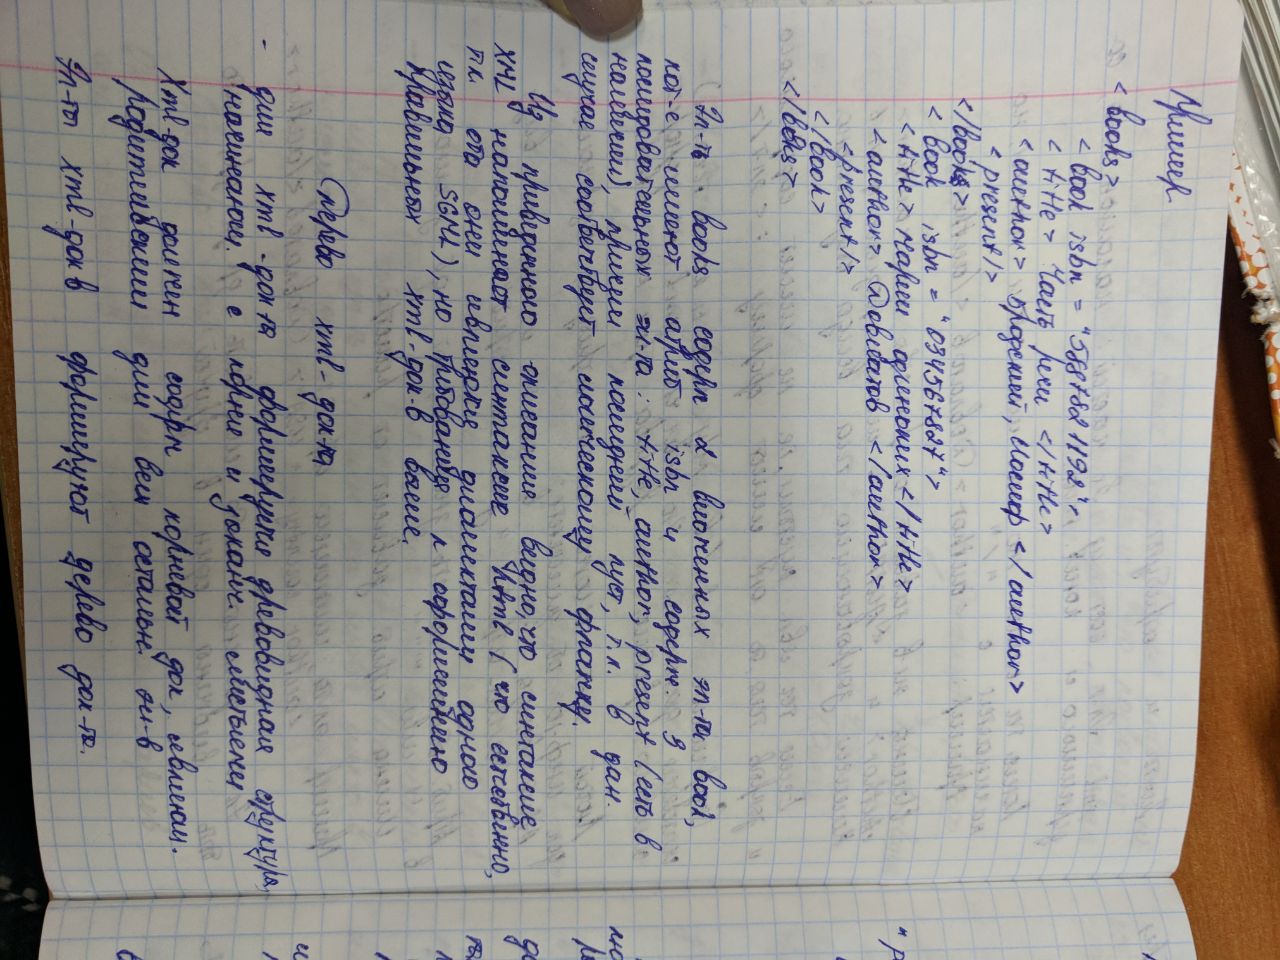 Пример
< books >
< book isbn = "5887821192">
< title > Часть речи </title>
<author> Бродский, Иосиф </author>
<present/>
</books>
< book isbn = "0345678827">
<title> Марш одиноких </title>
<author> Довлатов </author>
<present/>
</book>
</books>
Эл-т books содерж 2 вложенных эл-та book,
кот-е имеют атриб isbn и содерж. 3
эл-та: title, author, present (есть в
наличии), причем последний пуст, т.к. в дан.
случае соответствует логическому флагу.
Из приведенного описания видно, что синтаксис
XML напоминает синтаксис html (что естественно,
т.к. оба они являются диалектами одного
языка SGML), но требования к оформлению
правильных xml-док-в выше.
Дерево xml-док-та
- для xml-док-та формируется древовидная структура,
начинаюш. с корня и заканч. листьями
Xml-док должен содерж корневой док, являющ.
родительским для всех остальн. эл-в
Эл-ты xml-док-в формируют дерево док-та.